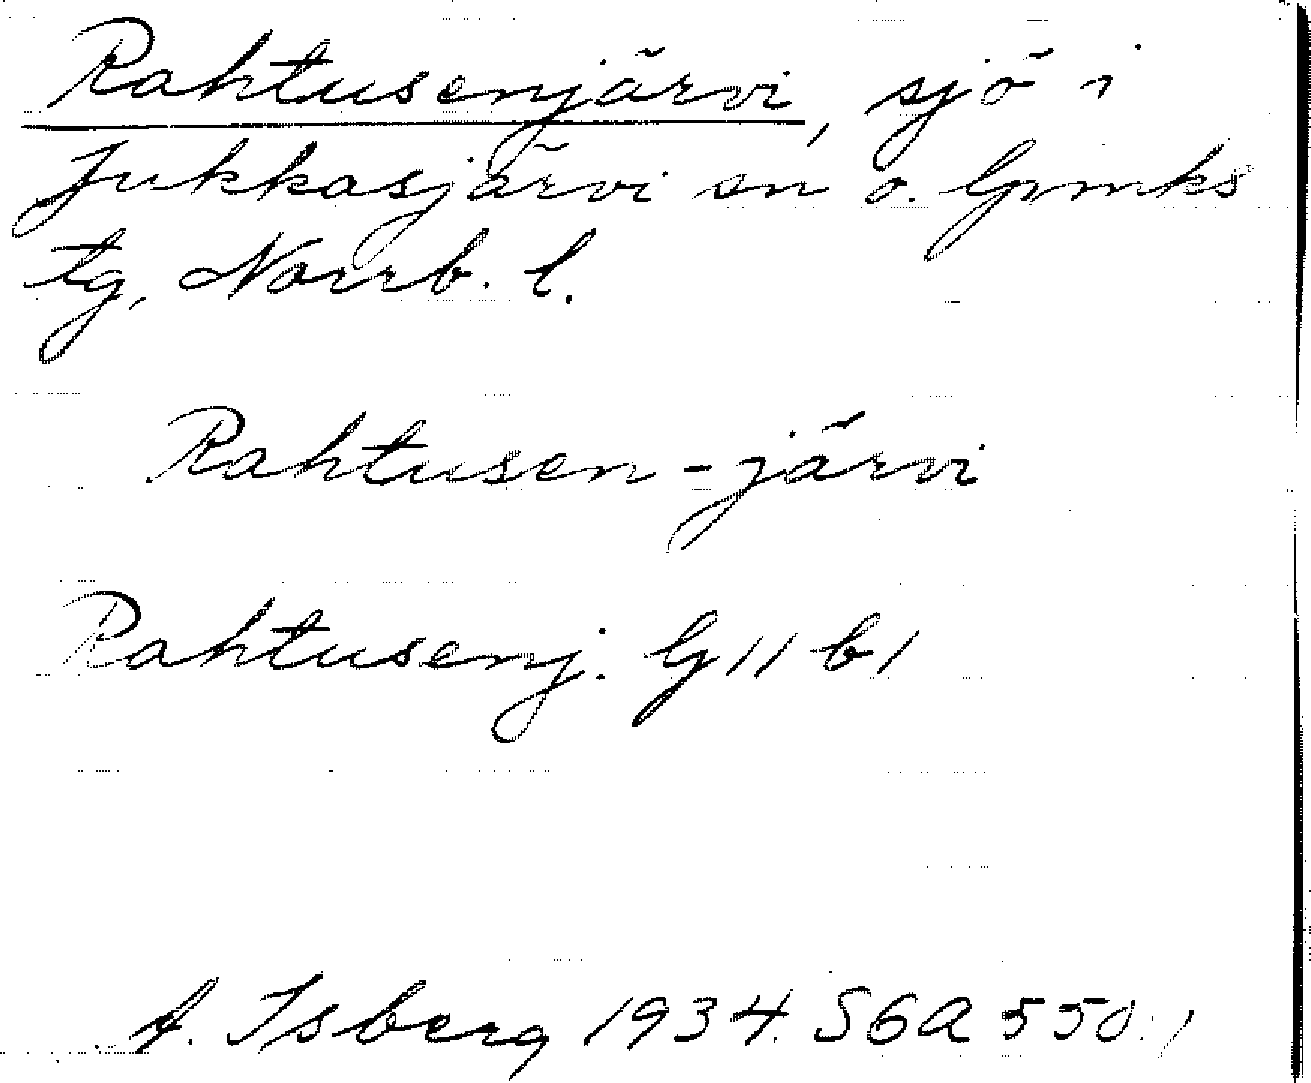 Rahtusenjärvi, sjö i
Jukkasjärvi sn o. lpmks
tg, Norrb. l.
Rahtusen-järvi
Rahtusenj. G 11 b 1
A. Isberg 1934. SGA 550:1